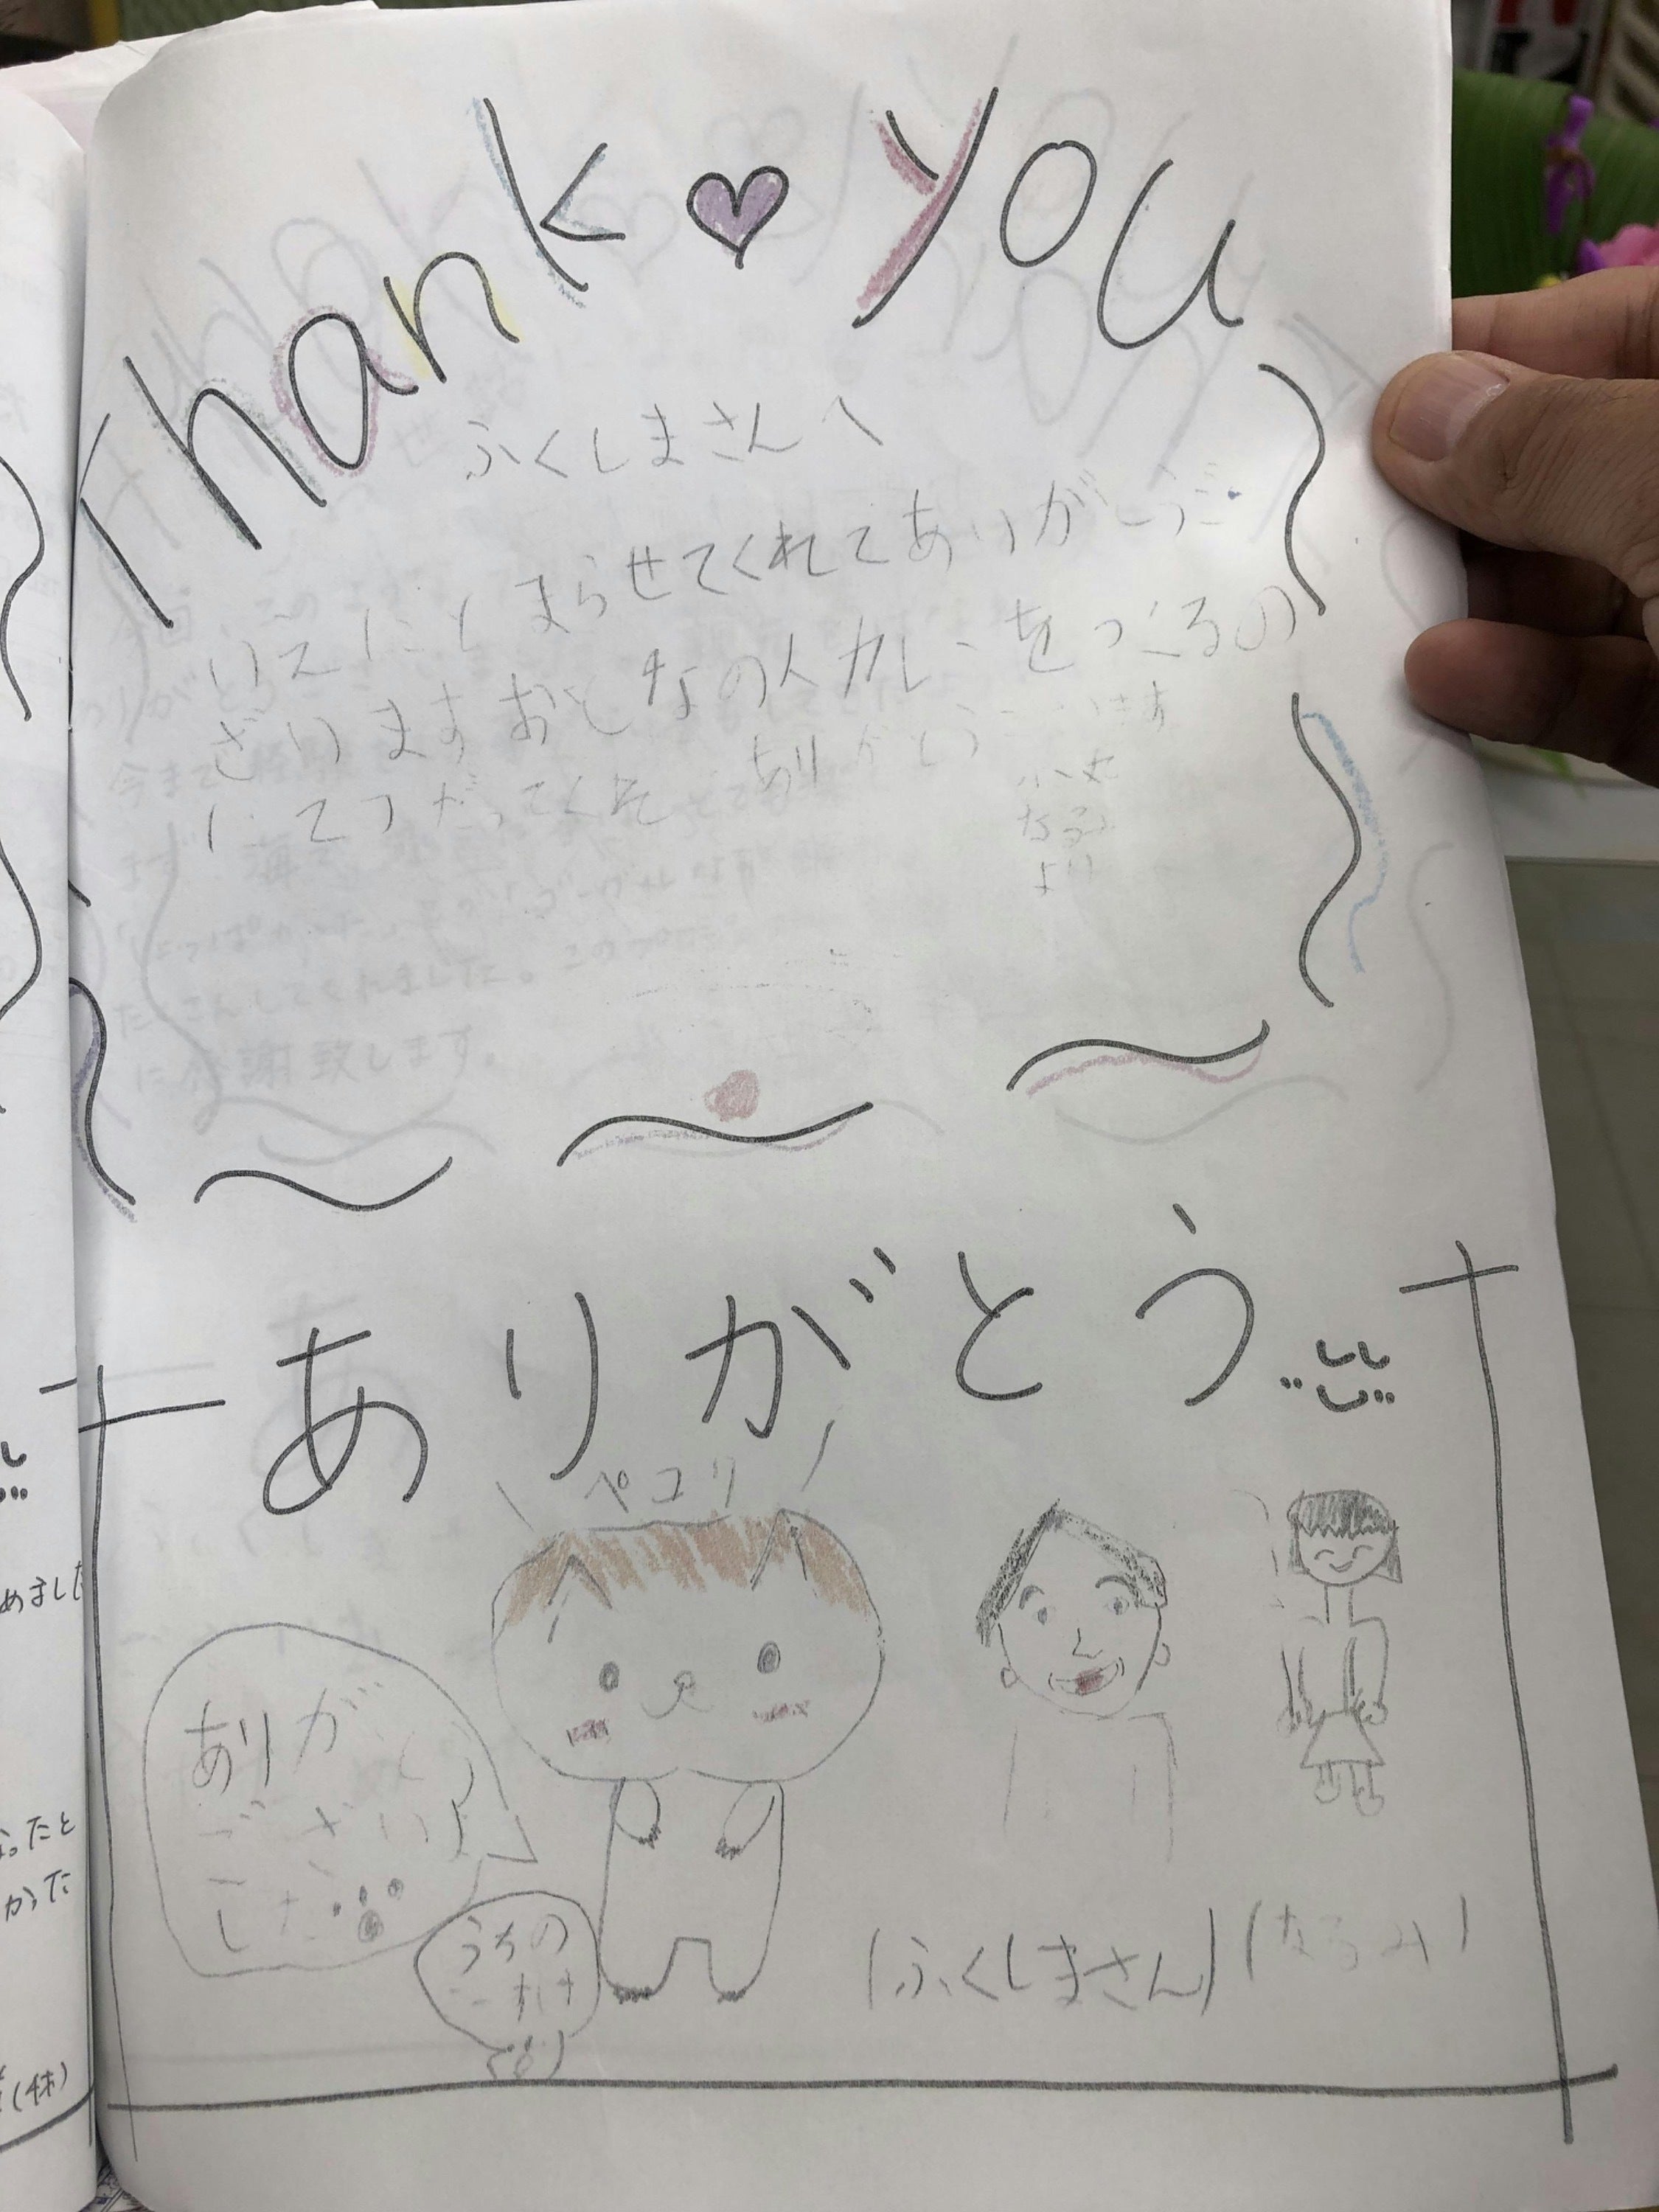 Thank you
ふくしまさんへ
いえにとまらせてくれてありがとうご
ざいますおとなの人カレーをつくるの
にてつだってくれて ありがとうございます
なるみ
より
ありがとう
ペコリ
ありがとう
ございま
した
うちの
(ふくしまさん) (なるみ)
めました
なったと
かった
(休)